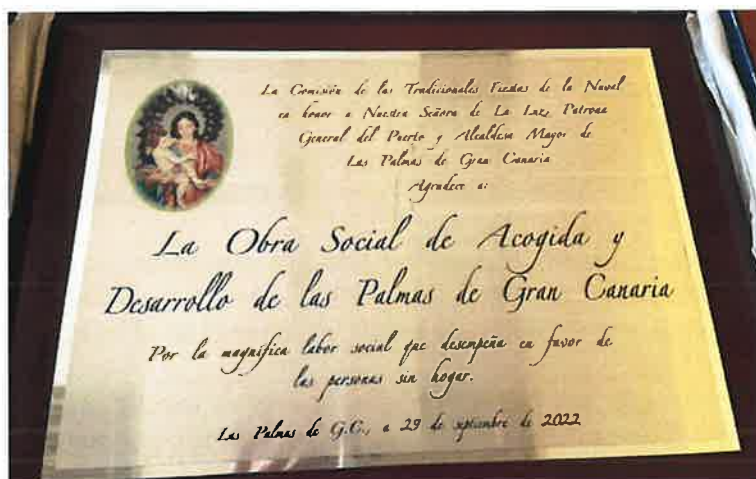 La Comisión de las Tradicionales Fiestas de la Naval
en honor a Nuestra Señora de La Luz, Patrona
General del Puerto y Alcaldesa Mayor de
Las Palmas de Gran Canaria
Agradece a:
La Obra Social de Acogida y
Desarrollo de las Palmas de Gran Canaria
Por la magnífica labor social que desempeña en favor de
las personas sin hogar.
Las Palmas de G.C., a 29 de septiembre de 2022